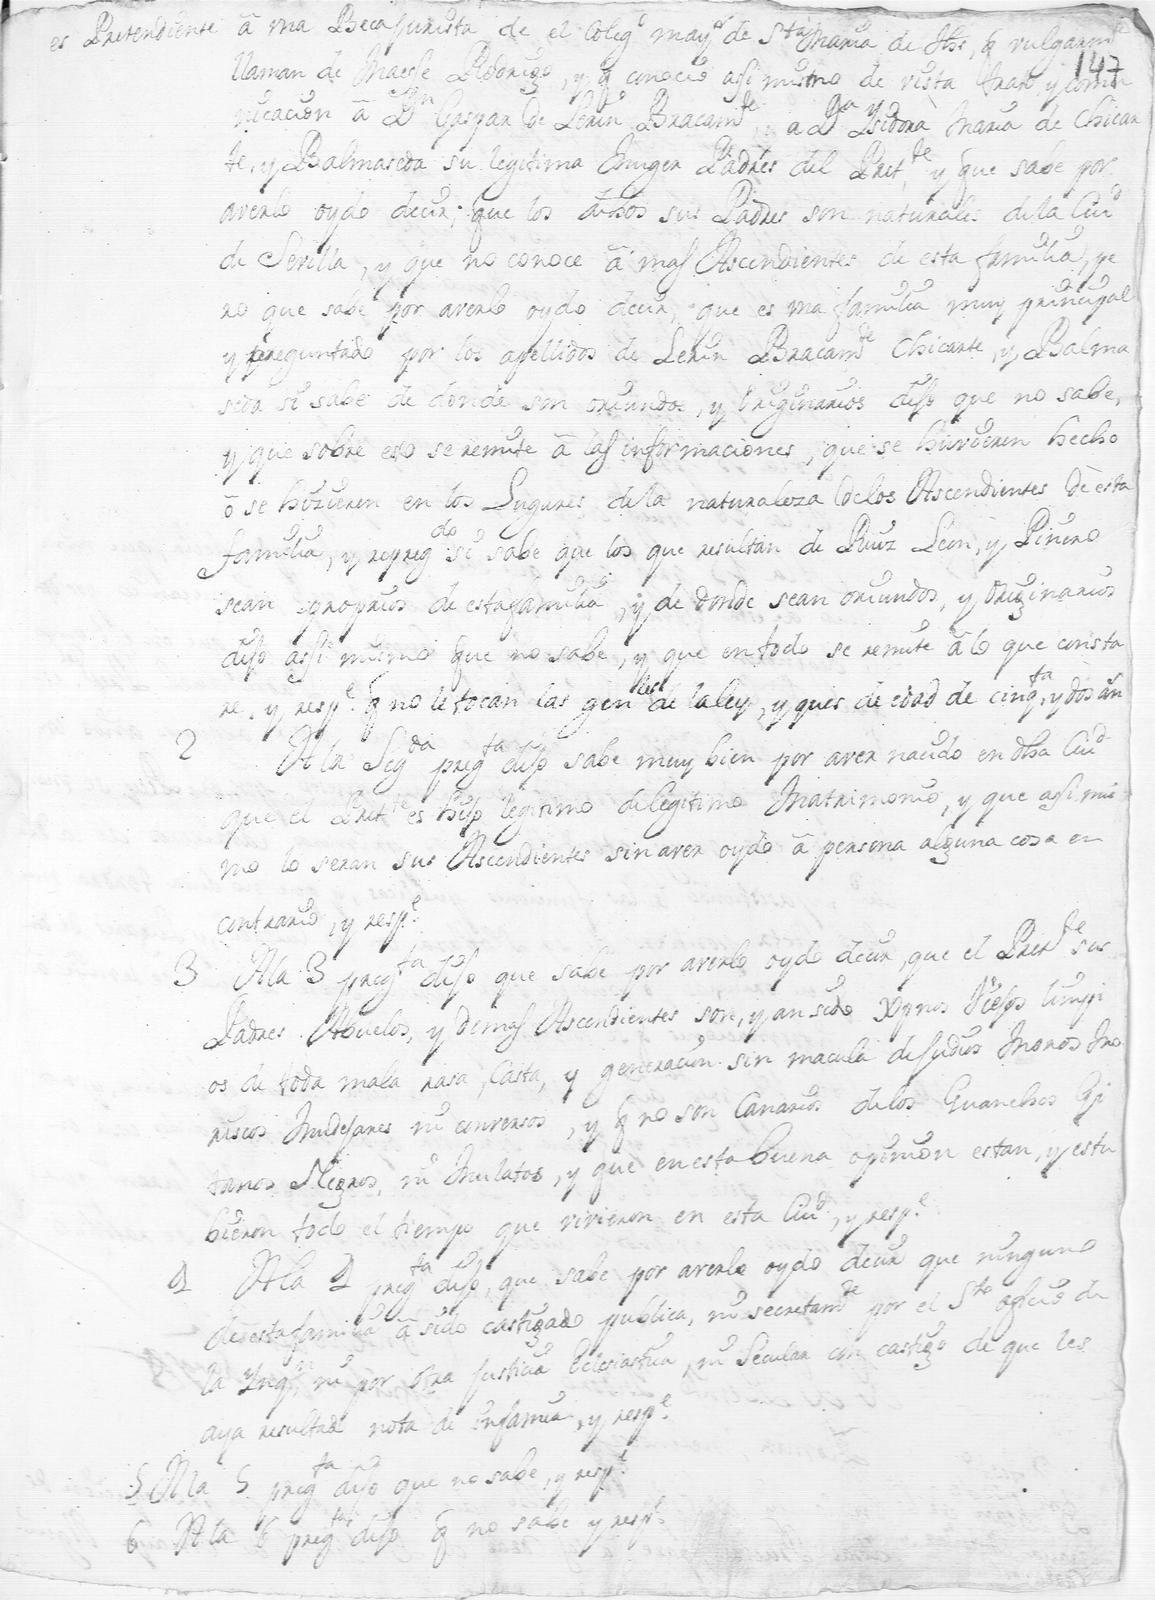 es Pretendiente â una Beca Jurista de el Coleg.º may.ʳ de S.ᵗᵃ Maria de Jhs, q̃ vulgarm.ᵗᵉ
147
llaman de Maese Rodrigo, y q̃ conocio assimismo de vista trato y comu
nicacion â D.ⁿ Gaspar de Lerin Bracam.ᵗᵉ, y a D.ᵃ Ysidora Maria de Chicar
te, y Balmaseda su legitima Muger Padres del Pret.ᵈᵉ y que sabe por
averlo oydo decir, que los dhos sus Padres son naturales de la Ciu.ᵈ
de Sevilla, y que no conoce â mas Ascendientes de esta familia, pe
ro que sabe por averlo oydo decir, que es una familia muy principal
y preguntado por los apellidos de Lerin Bracam.ᵗᵉ Chicarte, y Balma
seda si sabe de donde son oriundos, y originarios dijo que no sabe,
y que sobre esto se remite â las informaciones, que se huvieren hecho
ô se hizieren en los Lugares de la naturaleza de los Ascendientes de esta
familia, y repreg.ᵈᵒ si sabe que los que resultan de Ruiz Leon, y Piñero
sean proprios de esta familia, y de donde sean oriundos, y originarios
dijo assi mismo que no sabe, y que en todo se remite â lo que consta
re, y resp.ᵉ q̃ no le tocan las gen.ˡᵉˢ de la ley, y ques de edad de cinq.ᵗᵃ, y dos añ
2 A la Seg.ᵈᵃ preg.ᵗᵃ dijo sabe muy bien por aver nacido en dha Ciu.ᵈ
que el Pret.ᵗᵉ es hijo legitimo de legitimo Matrimonio, y que assimis
mo lo seran sus Ascendientes sin aver oydo â persona alguna cosa en
contrario, y resp.ᵉ
3 A la 3 preg.ᵗᵃ dijo que sabe por averlo oydo decir, que el Pret.ᵈᵉ sus
Padres Abuelos, y demas Ascendientes son, y an sido Xpnos Viejos limpi
os de toda mala rasa, Casta, y generacion sin macula de Judios Moros Mo
riscos Mudejares ni conversos, y q̃ no son Canarios de los Guanchos Gi
tanos Negros, ni Mulatos, y que en esta buena opinion estan, y estu
bieron todo el tiempo que vivieron en esta Ciu.ᵈ, y resp.ᵉ
4 A la 4 preg.ᵗᵃ dijo, que sabe por averlo oydo decir que ninguno
de esta familia â sido castigado publica, ni secretam.ᵗᵉ por el S.ᵗᵒ oficio de
la Ynq.ⁿ, ni por otra Justicia Eclesiastica, ni Secular con castigo de que les
aya resultado nota de infamia, y resp.ᵉ
5 A la 5 preg.ᵗᵃ dijo que no sabe, y resp.ᵉ
6 A la 6 preg.ᵗᵃ dijo q̃ no sabe y resp.ᵉ